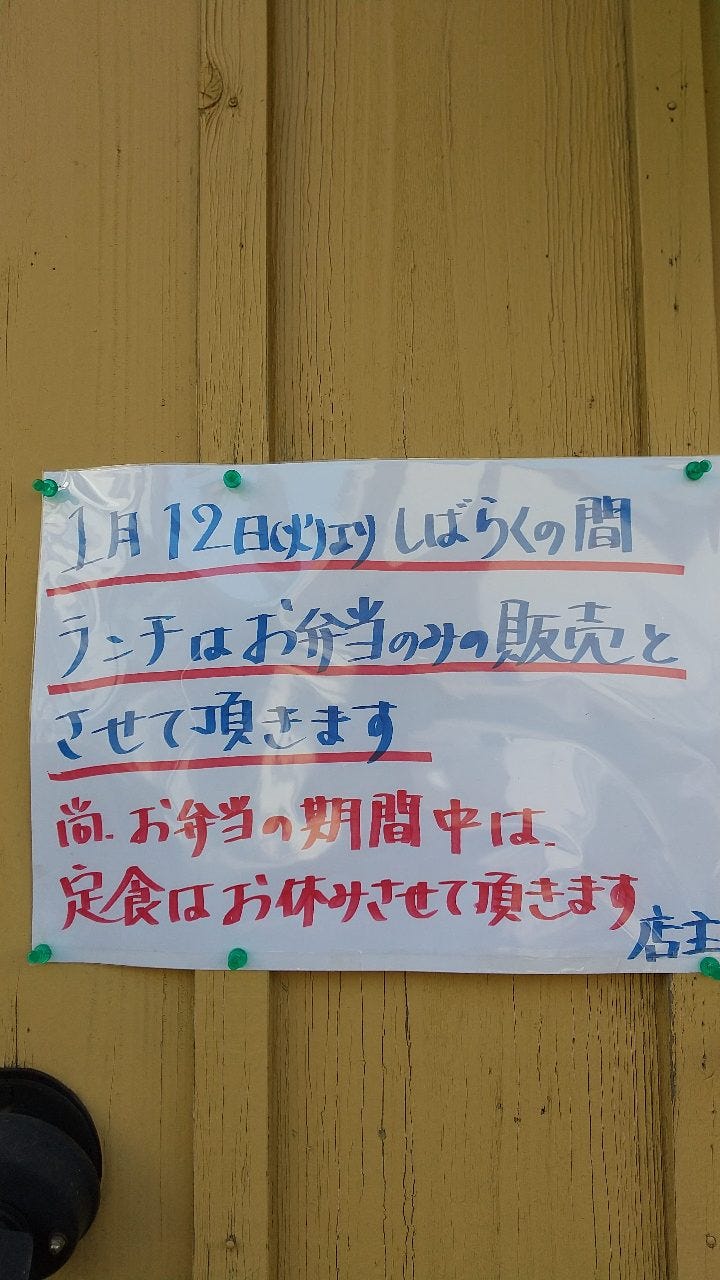 1月12日(火)よりしばらくの間
ランチはお弁当のみの販売と
させて頂きます
尚、お弁当の期間中は、
定食はお休みさせて頂きます
店主